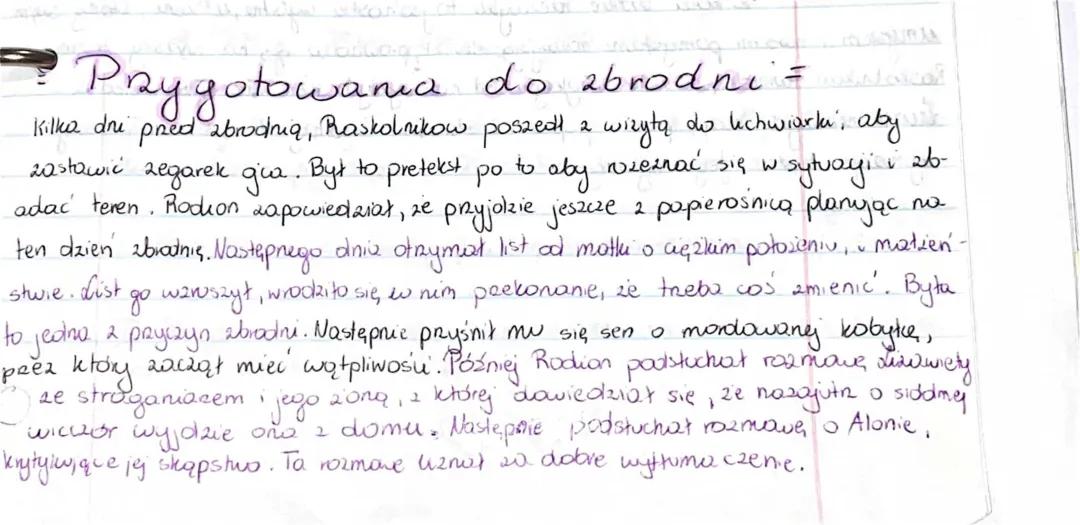 Przygotowania do zbrodni =
Kilka dni przed zbrodnią, Raskolnikow poszedł z wizytą do lichwiarki, aby
zastawić zegarek ojca. Był to pretekst po to aby rozeznać się w sytuacji i zb-
adać teren. Rodion zapowiedział, że przyjdzie jeszcze z papierośnicą planując na
ten dzień zbrodnię. Następnego dnia otrzymał list od matki o ciężkim położeniu, i małżeń-
stwie. List go wzruszył, wrodziło się w nim przekonanie, że trzeba coś zmienić. Była
to jedna z przyczyn zbrodni. Następnie przyśnił mu się sen o mordowanej kobyłce,
przez który zaczął mieć wątpliwości. Później Rodion podsłuchał rozmowę Lizawiety
ze straganiarzem i jego żoną, z której dowiedział się, że nazajutrz o siódmej
wieczór wyjdzie ona z domu. Następnie podsłuchał rozmowę o Alonie,
krytykujące jej skąpstwo. Tą rozmowe uznał za dobre wytłumaczenie.